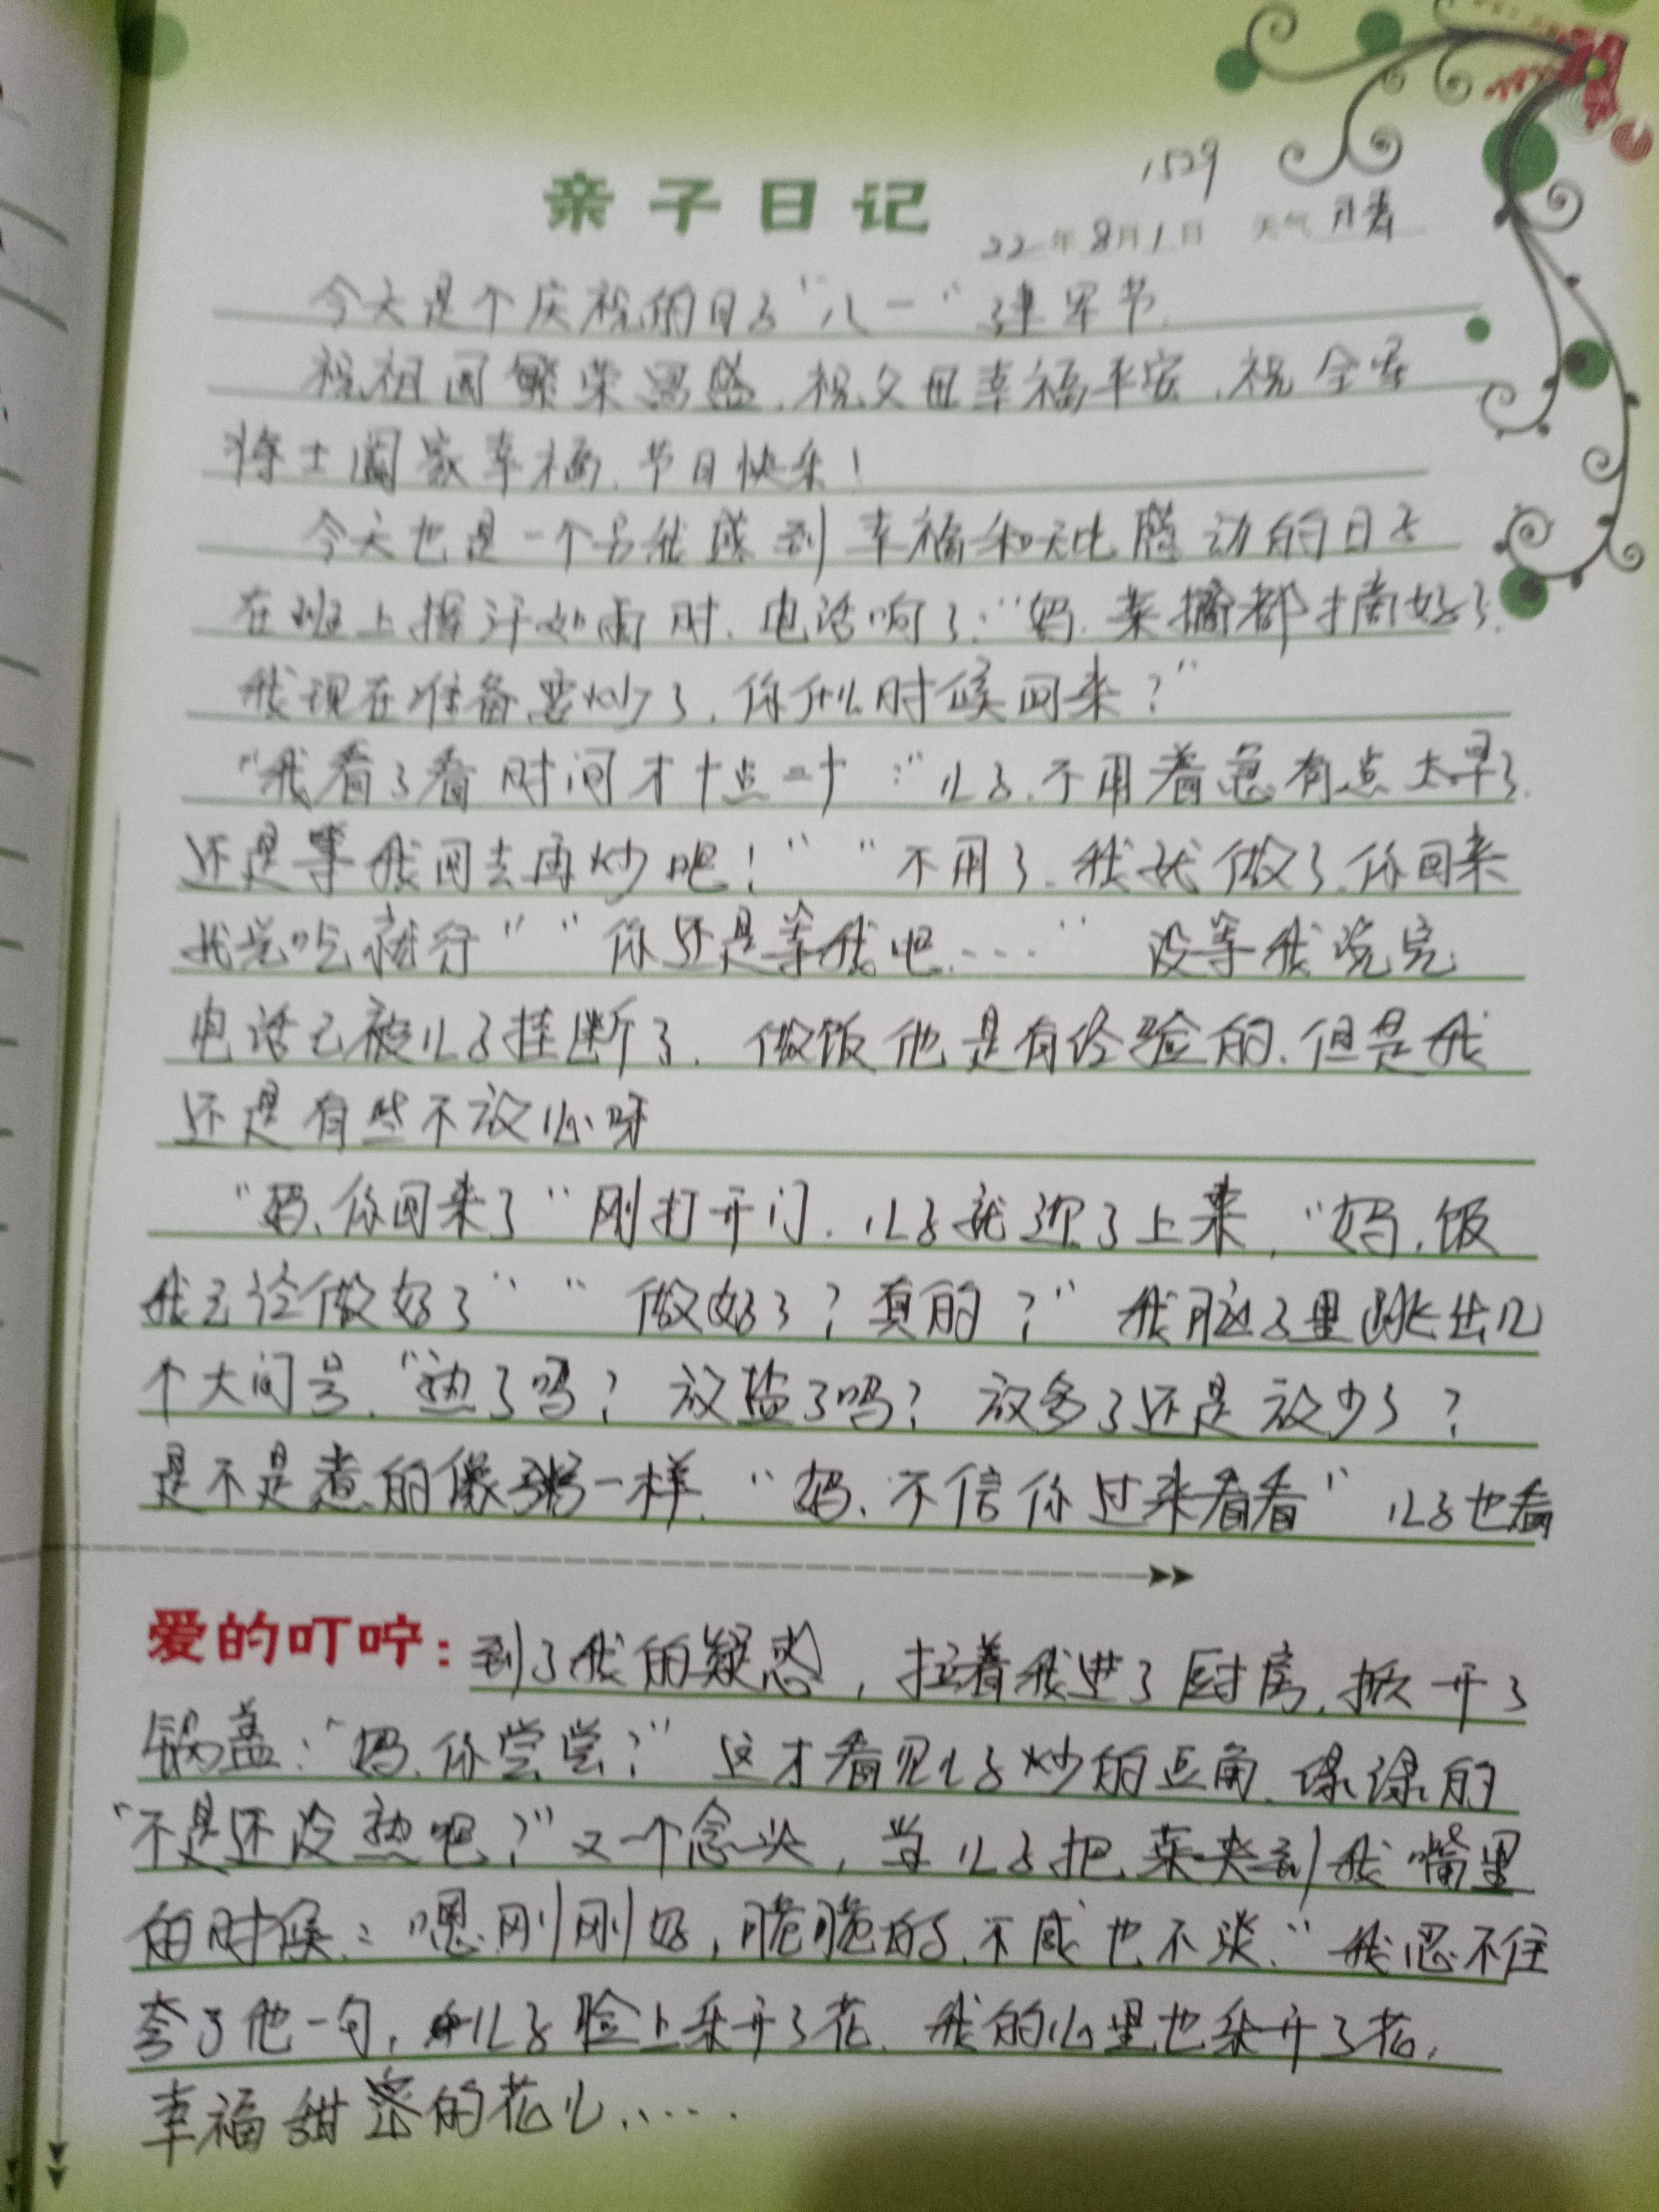 1529
亲子日记
22年8月1日 天气 晴
今天是个庆祝的日子“八一”建军节.
祝祖国繁荣昌盛,祝父母幸福平安,祝全军
将士阖家幸福,节日快乐!
今天也是一个另我感到幸福和无比感动的日子
在班上挥汗如雨时,电话响了:“妈,菜摘都摘好了.
我现在准备要炒了,你什么时候回来?”
“我看了看时间才十点二十:“儿子,不用着急有点太早了.
还是等我回去再炒吧!” “不用了,我就做了,你回来
我觉吃就行” “你还是等我吧……” 没等我说完
电话已被儿子挂断了. 做饭他是有经验的,但是我
还是有些不放心呀
“妈,你回来了”刚打开门,儿子就迎了上来,“妈,饭
我已经做好了” “做好了?真的?” 我脑子里跳出几
个大问号,“熟了吗? 放盐了吗? 放多了还是放少了?
是不是煮的像粥一样,“妈,不信你过来看看” 儿子也看
爱的叮咛:到了我的疑惑,拉着我进了厨房,掀开了
锅盖:“妈,你尝尝?” 这才看见儿子炒的豆角,绿绿的
“不是还没熟吧?”又一个念头,当儿子把菜夹到我嘴里
的时候:“嗯,刚刚好,脆脆的,不咸也不淡.”我忍不住
夸了他一句,儿子脸上乐开了花,我的心里也乐开了花,
幸福甜蜜的花儿……